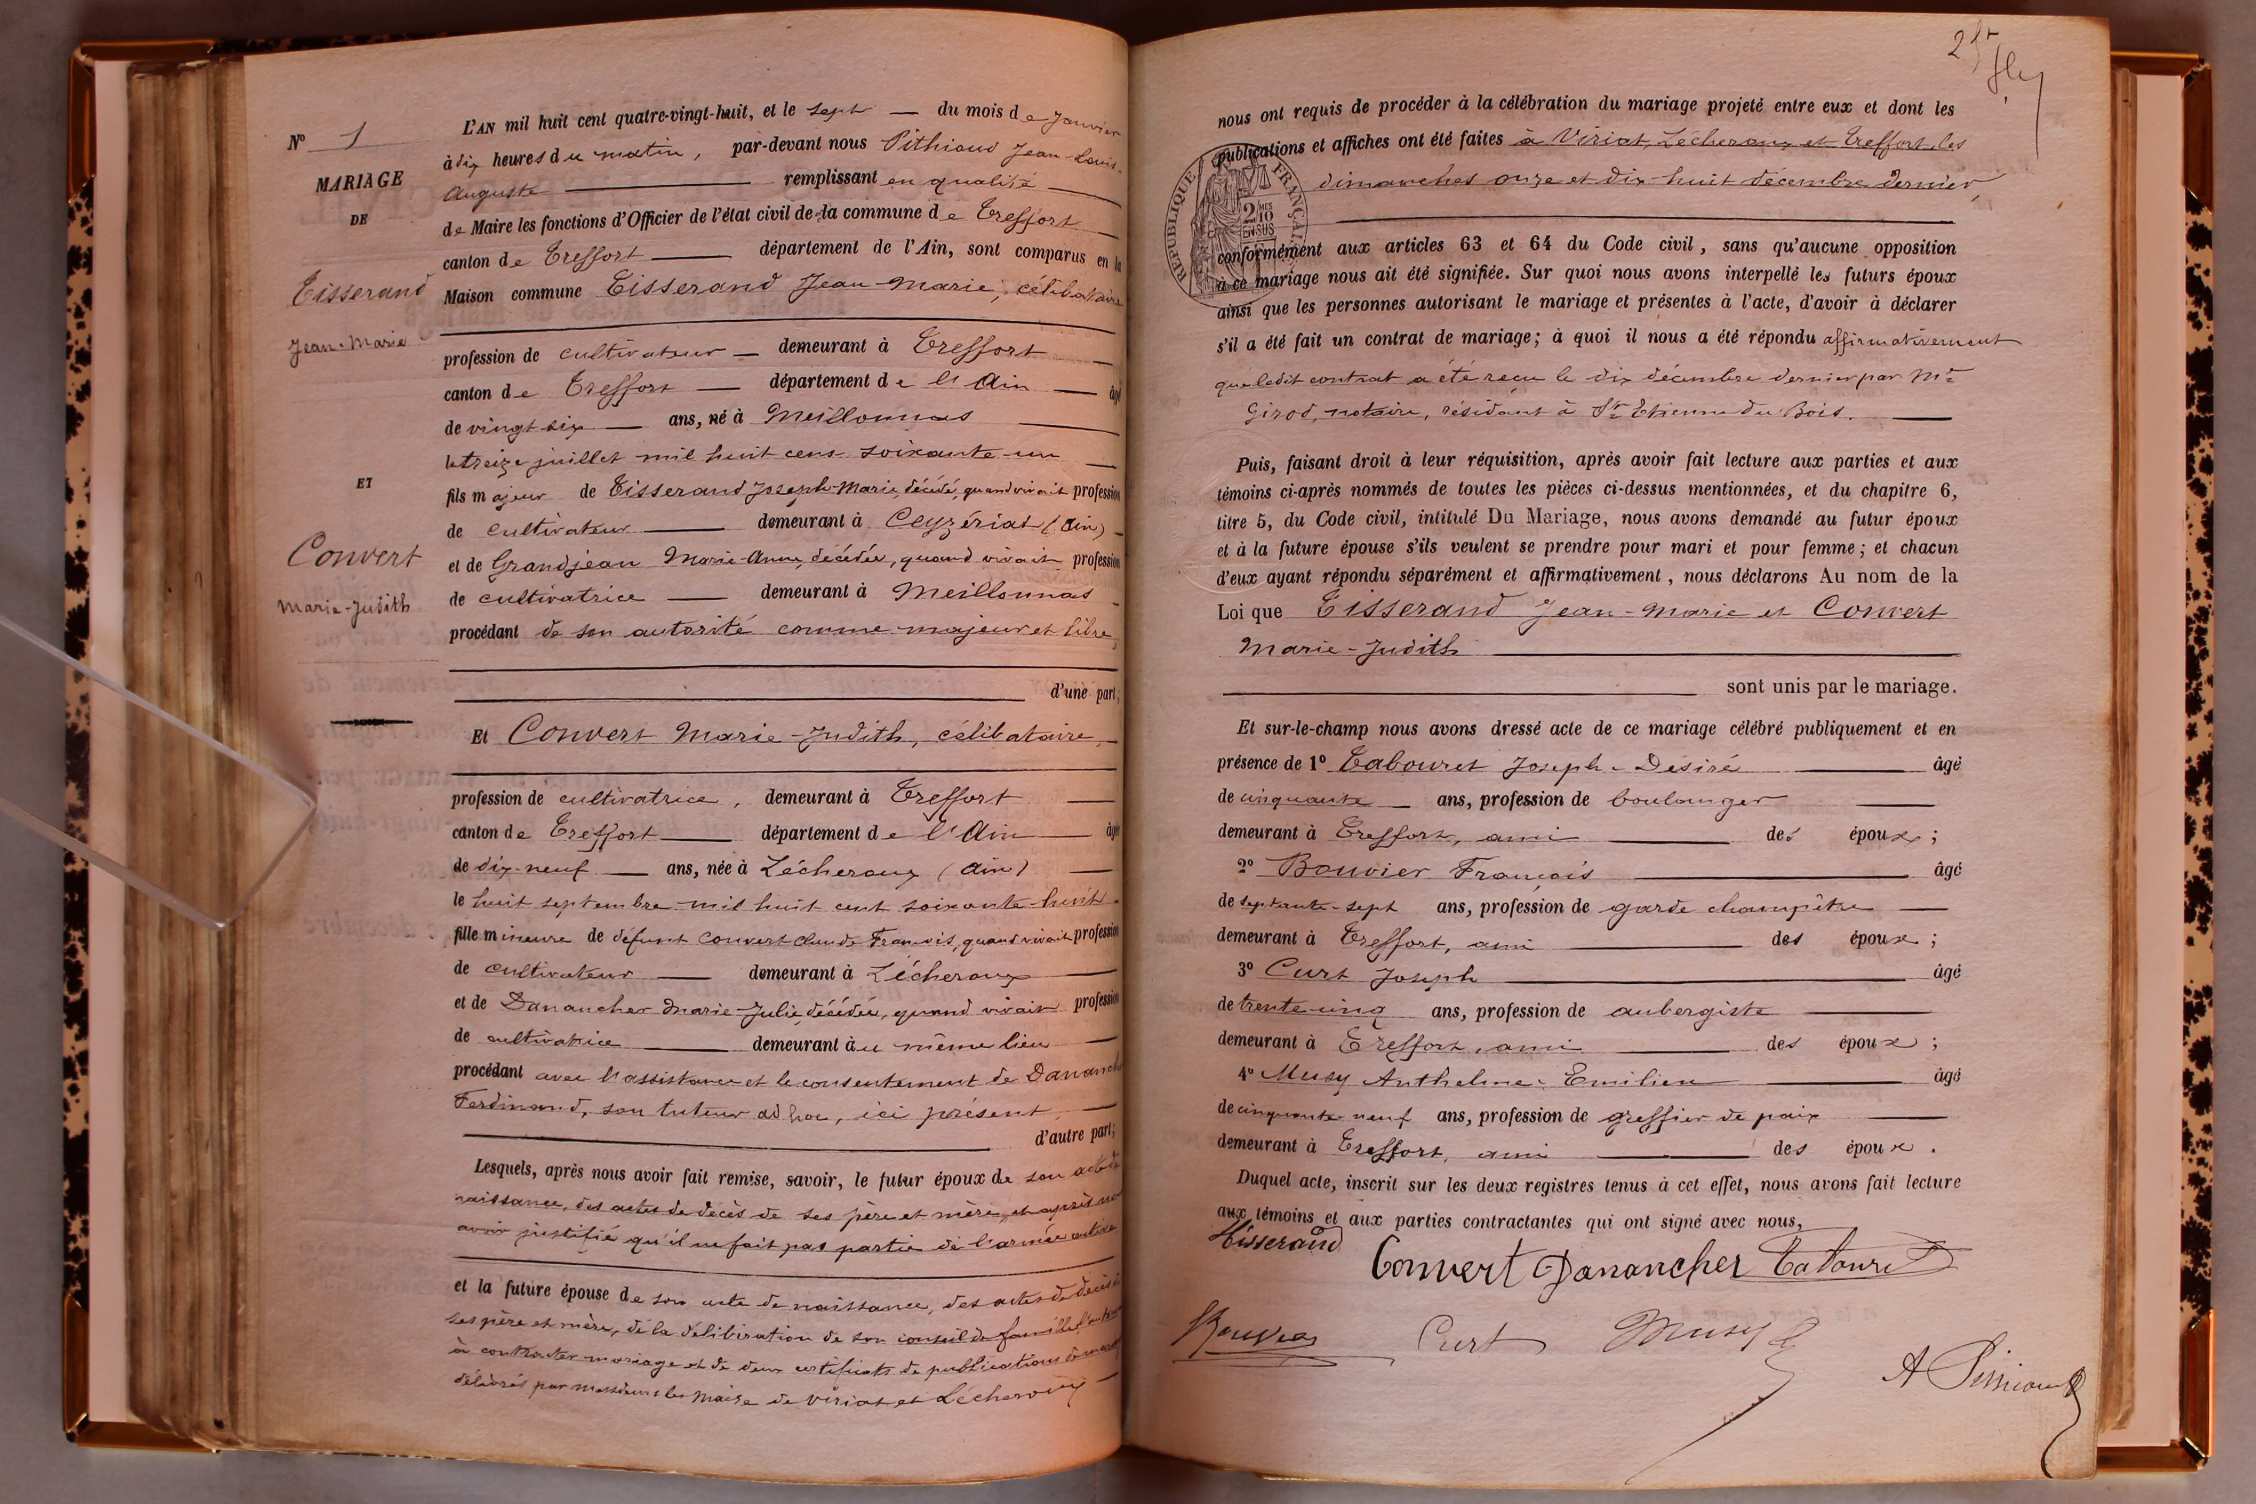 No 1
MARIAGE
DE
Tisserand
Jean-Marie
ET
Convert
Marie-Judith
L'AN mil huit cent quatre-vingt-huit, et le sept du mois de Janvier
à dix heures du matin, par-devant nous Pithioud Jean-Louis-
Auguste remplissant en qualité
de Maire les fonctions d'Officier de l'état civil de la commune de Treffort
canton de Treffort département de l'Ain, sont comparus en la
Maison commune Tisserand Jean-Marie, célibataire
profession de cultivateur demeurant à Treffort
canton de Treffort département de l'Ain âgé
de vingt six ans, né à Meillonnas
le treize juillet mil huit cent soixante-un
fils majeur de Tisserand Joseph-Marie, décédé, quand vivait profession
de cultivateur demeurant à Ceyzériat (Ain)
et de Grandjean Marie-Anne, décédée, quand vivait profession
de cultivatrice demeurant à Meillonnas
procédant de son autorité comme majeur et libre,
d'une part;
Et Convert Marie-Judith, célibataire,
profession de cultivatrice, demeurant à Treffort
canton de Treffort département de l'Ain âgée
de dix-neuf ans, née à Lécheroux (Ain)
le huit septembre mil huit cent soixante-huit
fille mineure de défunt Convert Claude François, quand vivait profession
de cultivateur demeurant à Lécheroux
et de Danancher Marie-Julie, décédée, quand vivait profession
de cultivatrice demeurant au même lieu
procédant avec l'assistance et le consentement de Danancher
Ferdinand, son tuteur ad hoc, ici présent,
d'autre part;
Lesquels, après nous avoir fait remise, savoir, le futur époux de son acte de
naissance, des actes de décès de ses père et mère, et après nous
avoir justifié qu'il ne fait pas partie de l'armée active
et la future épouse de son acte de naissance, des actes de décès de
ses père et mère, de la délibération de son conseil de famille l'autorisant
à contracter mariage et de deux certificats de publications de mariage
délivrés par messieurs les Maire de Viriat et Lécheroux
25 r
nous ont requis de procéder à la célébration du mariage projeté entre eux et dont les
publications et affiches ont été faites à Viriat, Lécheroux et Treffort, les
dimanches onze et dix-huit décembre dernier,
RÉPUBLIQUE FRANÇAISE
2 MES 10
EN SUS
conformément aux articles 63 et 64 du Code civil, sans qu'aucune opposition
à ce mariage nous ait été signifiée. Sur quoi nous avons interpellé les futurs époux
ainsi que les personnes autorisant le mariage et présentes à l'acte, d'avoir à déclarer
s'il a été fait un contrat de mariage; à quoi il nous a été répondu affirmativement
que ledit contrat a été reçu le dix décembre dernier par Me
Girod, notaire, résidant à St Etienne du Bois.
Puis, faisant droit à leur réquisition, après avoir fait lecture aux parties et aux
témoins ci-après nommés de toutes les pièces ci-dessus mentionnées, et du chapitre 6,
titre 5, du Code civil, intitulé Du Mariage, nous avons demandé au futur époux
et à la future épouse s'ils veulent se prendre pour mari et pour femme; et chacun
d'eux ayant répondu séparément et affirmativement, nous déclarons Au nom de la
Loi que Tisserand Jean-Marie et Convert
Marie-Judith
sont unis par le mariage.
Et sur-le-champ nous avons dressé acte de ce mariage célébré publiquement et en
présence de 1° Tabouret Joseph-Désiré âgé
de cinquante ans, profession de boulanger
demeurant à Treffort, ami des époux;
2° Bouvier François âgé
de septante-sept ans, profession de garde champêtre
demeurant à Treffort, ami des époux;
3° Curt Joseph âgé
de trente-cinq ans, profession de aubergiste
demeurant à Treffort, ami des époux;
4° Musy Anthelme-Emilien âgé
de cinquante-neuf ans, profession de greffier de paix
demeurant à Treffort, ami des époux.
Duquel acte, inscrit sur les deux registres tenus à cet effet, nous avons fait lecture
aux témoins et aux parties contractantes qui ont signé avec nous,
Tisserand
Convert Danancher Tabouret
Bouvier Curt Musy
A Pithioud